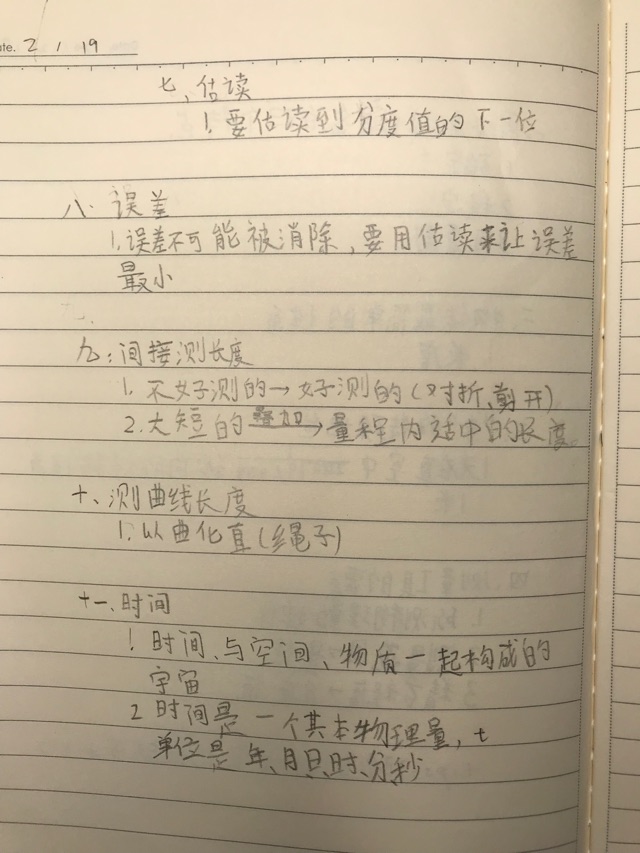 ate. 2 / 19
七、估读
1. 要估读到分度值的下一位
八. 误差
1. 误差不可能被消除,要用估读来让误差
最小
九:间接测长度
1. 不好测的→好测的(对折、剪开)
2. 太短的 叠加→量程内适中的长度。
十、测曲线长度
1. 以曲化直(绳子)
十一、时间
1 时间、与空间、物质一起构成的
宇宙
2 时间是一个其本物理量,t
单位是年、月日、时、分秒